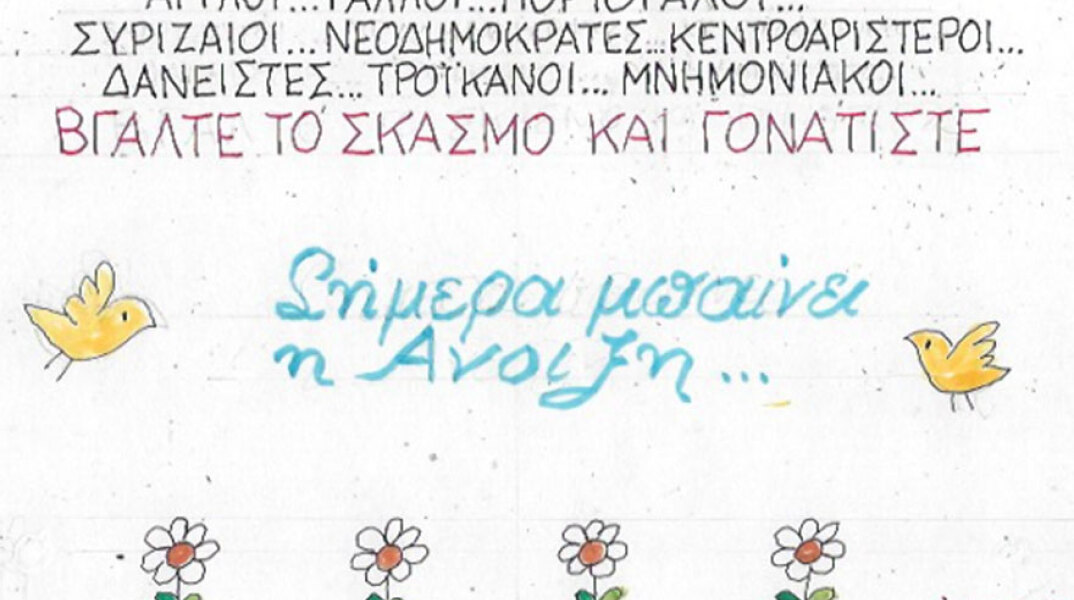 ΣΥΡΙΖΑΙΟΙ... ΝΕΟΔΗΜΟΚΡΑΤΕΣ... ΚΕΝΤΡΟΑΡΙΣΤΕΡΟΙ...
ΔΑΝΕΙΣΤΕΣ... ΤΡΟΪΚΑΝΟΙ... ΜΝΗΜΟΝΙΑΚΟΙ...
ΒΓΑΛΤΕ ΤΟ ΣΚΑΣΜΟ ΚΑΙ ΓΟΝΑΤΙΣΤΕ
Σήμερα μπαίνει
η Ανοιξη...